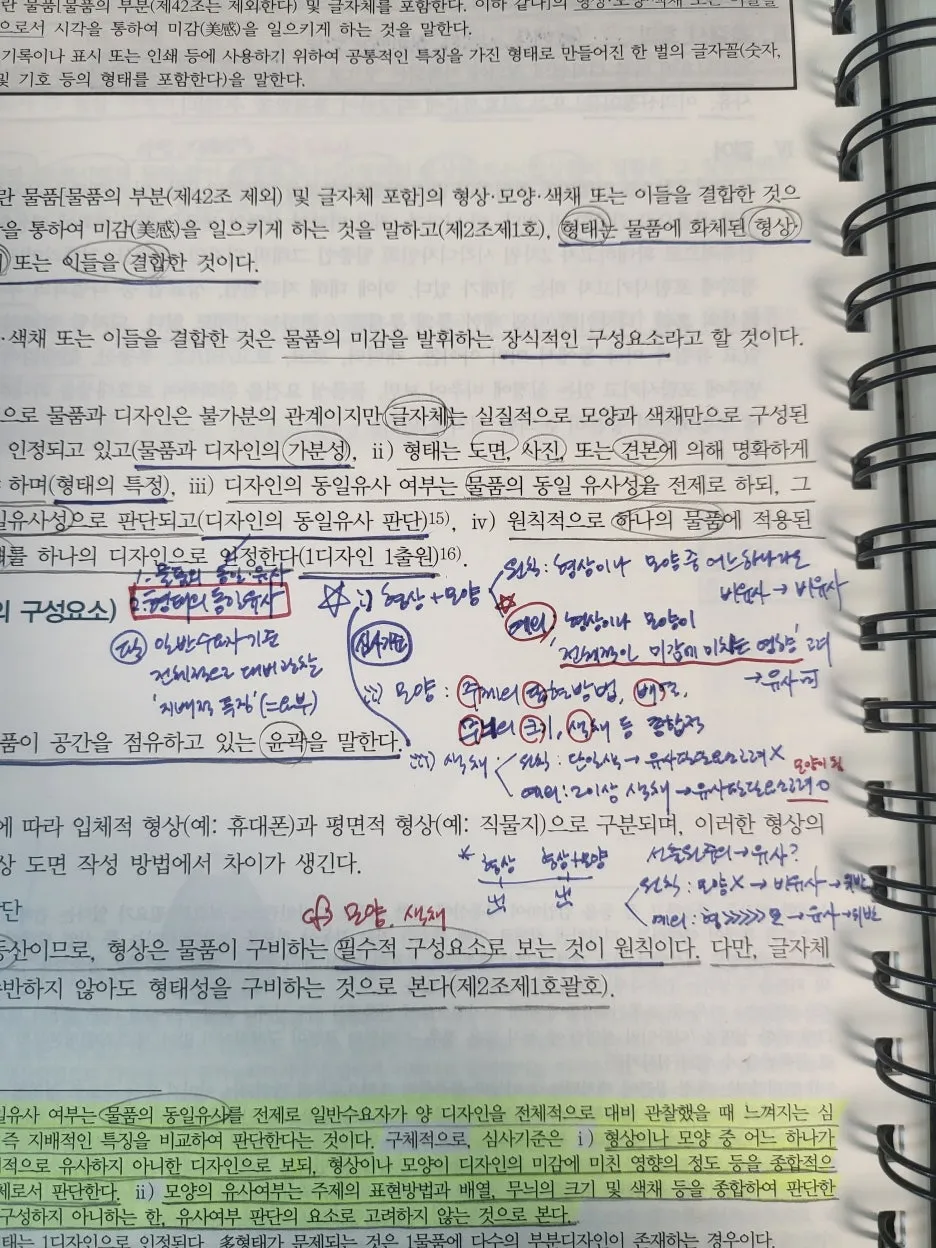 란 물품[물품의 부분(제42조는 제외한다) 및 글자체를 포함한다. 이하 같다]의 형상·모양·색채 또는 이들을
으로서 시각을 통하여 미감(美感)을 일으키게 하는 것을 말한다.
기록이나 표시 또는 인쇄 등에 사용하기 위하여 공통적인 특징을 가진 형태로 만들어진 한 벌의 글자꼴(숫자,
및 기호 등의 형태를 포함한다)을 말한다.
란 물품[물품의 부분(제42조 제외) 및 글자체 포함]의 형상·모양·색채 또는 이들을 결합한 것으
을 통하여 미감(美感)을 일으키게 하는 것을 말하고(제2조제1호), 형태는 물품에 화체된 형상·
또는 이들을 결합한 것이다.
·색채 또는 이들을 결합한 것은 물품의 미감을 발휘하는 장식적인 구성요소라고 할 것이다.
으로 물품과 디자인은 불가분의 관계이지만 글자체는 실질적으로 모양과 색채만으로 구성된
인정되고 있고(물품과 디자인의 가분성), ii) 형태는 도면, 사진, 또는 견본에 의해 명확하게
하며(형태의 특정), iii) 디자인의 동일유사 여부는 물품의 동일 유사성을 전제로 하되, 그
일유사성으로 판단되고(디자인의 동일유사 판단)15), iv) 원칙적으로 하나의 물품에 적용된
태를 하나의 디자인으로 인정한다(1디자인 1출원)16).
1. 물품의 동일·유사
2. 형태의 동일유사
의 구성요소)
판) 일반수요자 기준
전체적으로 대비 관찰
'지배적 특징' (=요부)
☆ i) 형상+모양
원칙: 형상이나 모양 중 어느 하나라도
비유사 → 비유사
☆ 예외: 형상이나 모양이
'전체적인 미감에 미치는 영향' 고려
→ 유사可
심사기준
ii) 모양: 주제의 표현방법, 배열,
무늬의 크기, 색채 등 종합적
iii) 색채:
원칙: 단일색 → 유사판단요소 고려 X
예외: 2이상 색채 → 유사판단요소 고려 O
모양이 됨
품이 공간을 점유하고 있는 윤곽을 말한다.
에 따라 입체적 형상(예: 휴대폰)과 평면적 형상(예: 직물지)으로 구분되며, 이러한 형상의
상 도면 작성 방법에서 차이가 생긴다.
* 형상 형상+모양
선출원주의 → 유사?
원칙: 모양 X → 비유사 →
예외: 형>>>>>모 → 유사 → 위반
단
모양, 색채
동산이므로, 형상은 물품이 구비하는 필수적 구성요소로 보는 것이 원칙이다. 다만, 글자체
수반하지 않아도 형태성을 구비하는 것으로 본다(제2조제1호괄호).
일유사 여부는 물품의 동일유사를 전제로 일반수요자가 양 디자인을 전체적으로 대비 관찰했을 때 느껴지는 심
즉 지배적인 특징을 비교하여 판단한다는 것이다. 구체적으로, 심사기준은 i) 형상이나 모양 중 어느 하나가
적으로 유사하지 아니한 디자인으로 보되, 형상이나 모양이 디자인의 미감에 미친 영향의 정도 등을 종합적으
체로서 판단한다. ii) 모양의 유사여부는 주제의 표현방법과 배열, 무늬의 크기 및 색채 등을 종합하여 판단한
구성하지 아니하는 한, 유사여부 판단의 요소로 고려하지 않는 것으로 본다.
태는 1디자인으로 인정된다. 多형태가 문제되는 것은 1물품에 다수의 부분디자인이 존재하는 경우이다.